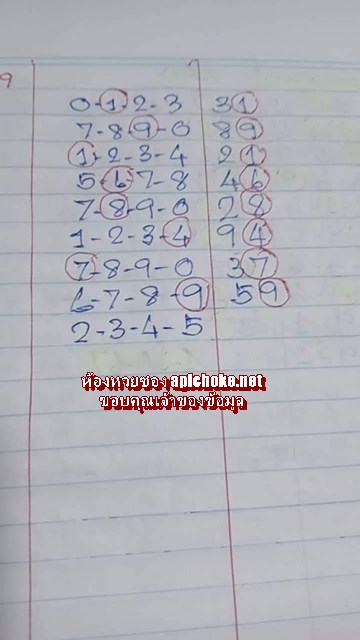 9
0-1-2-3 31
7-8-9-0 89
1-2-3-4 21
5-6-7-8 46
7-8-9-0 28
1-2-3-4 94
7-8-9-0 37
6-7-8-9 59
2-3-4-5
ห้องหวยซอง apichoke.net
ขอบคุณเจ้าของข้อมุล